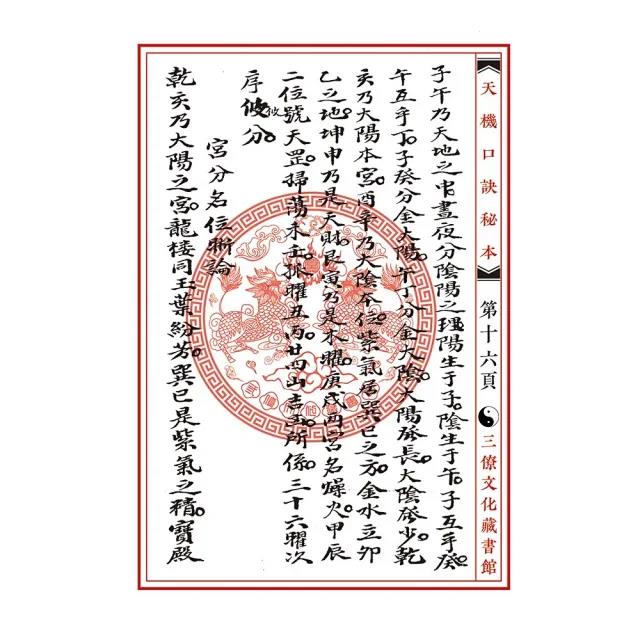 天機口訣秘本
第十六頁
三僚文化藏書館
子午乃天地之中晝夜分陰陽之理陽生于子陰生于午子互手癸
午互手丁子癸分金太陽午丁分金大陰大陽發長大陰發少乾
亥乃大陽本宮酉辛乃大陰本位紫氣居巽巳之方金水立卯
乙之地坤申乃是天財艮寅乃是木曜庚戌兩宮名燥火甲辰
二位號天罡掃蕩未壬孤曜丑丙廿四山吉凶所係三十六曜次
序攸攸分
宮分名位断論
乾亥乃大陽之宮龍楼同玉葉紛芳巽巳是紫氣之積寶殿